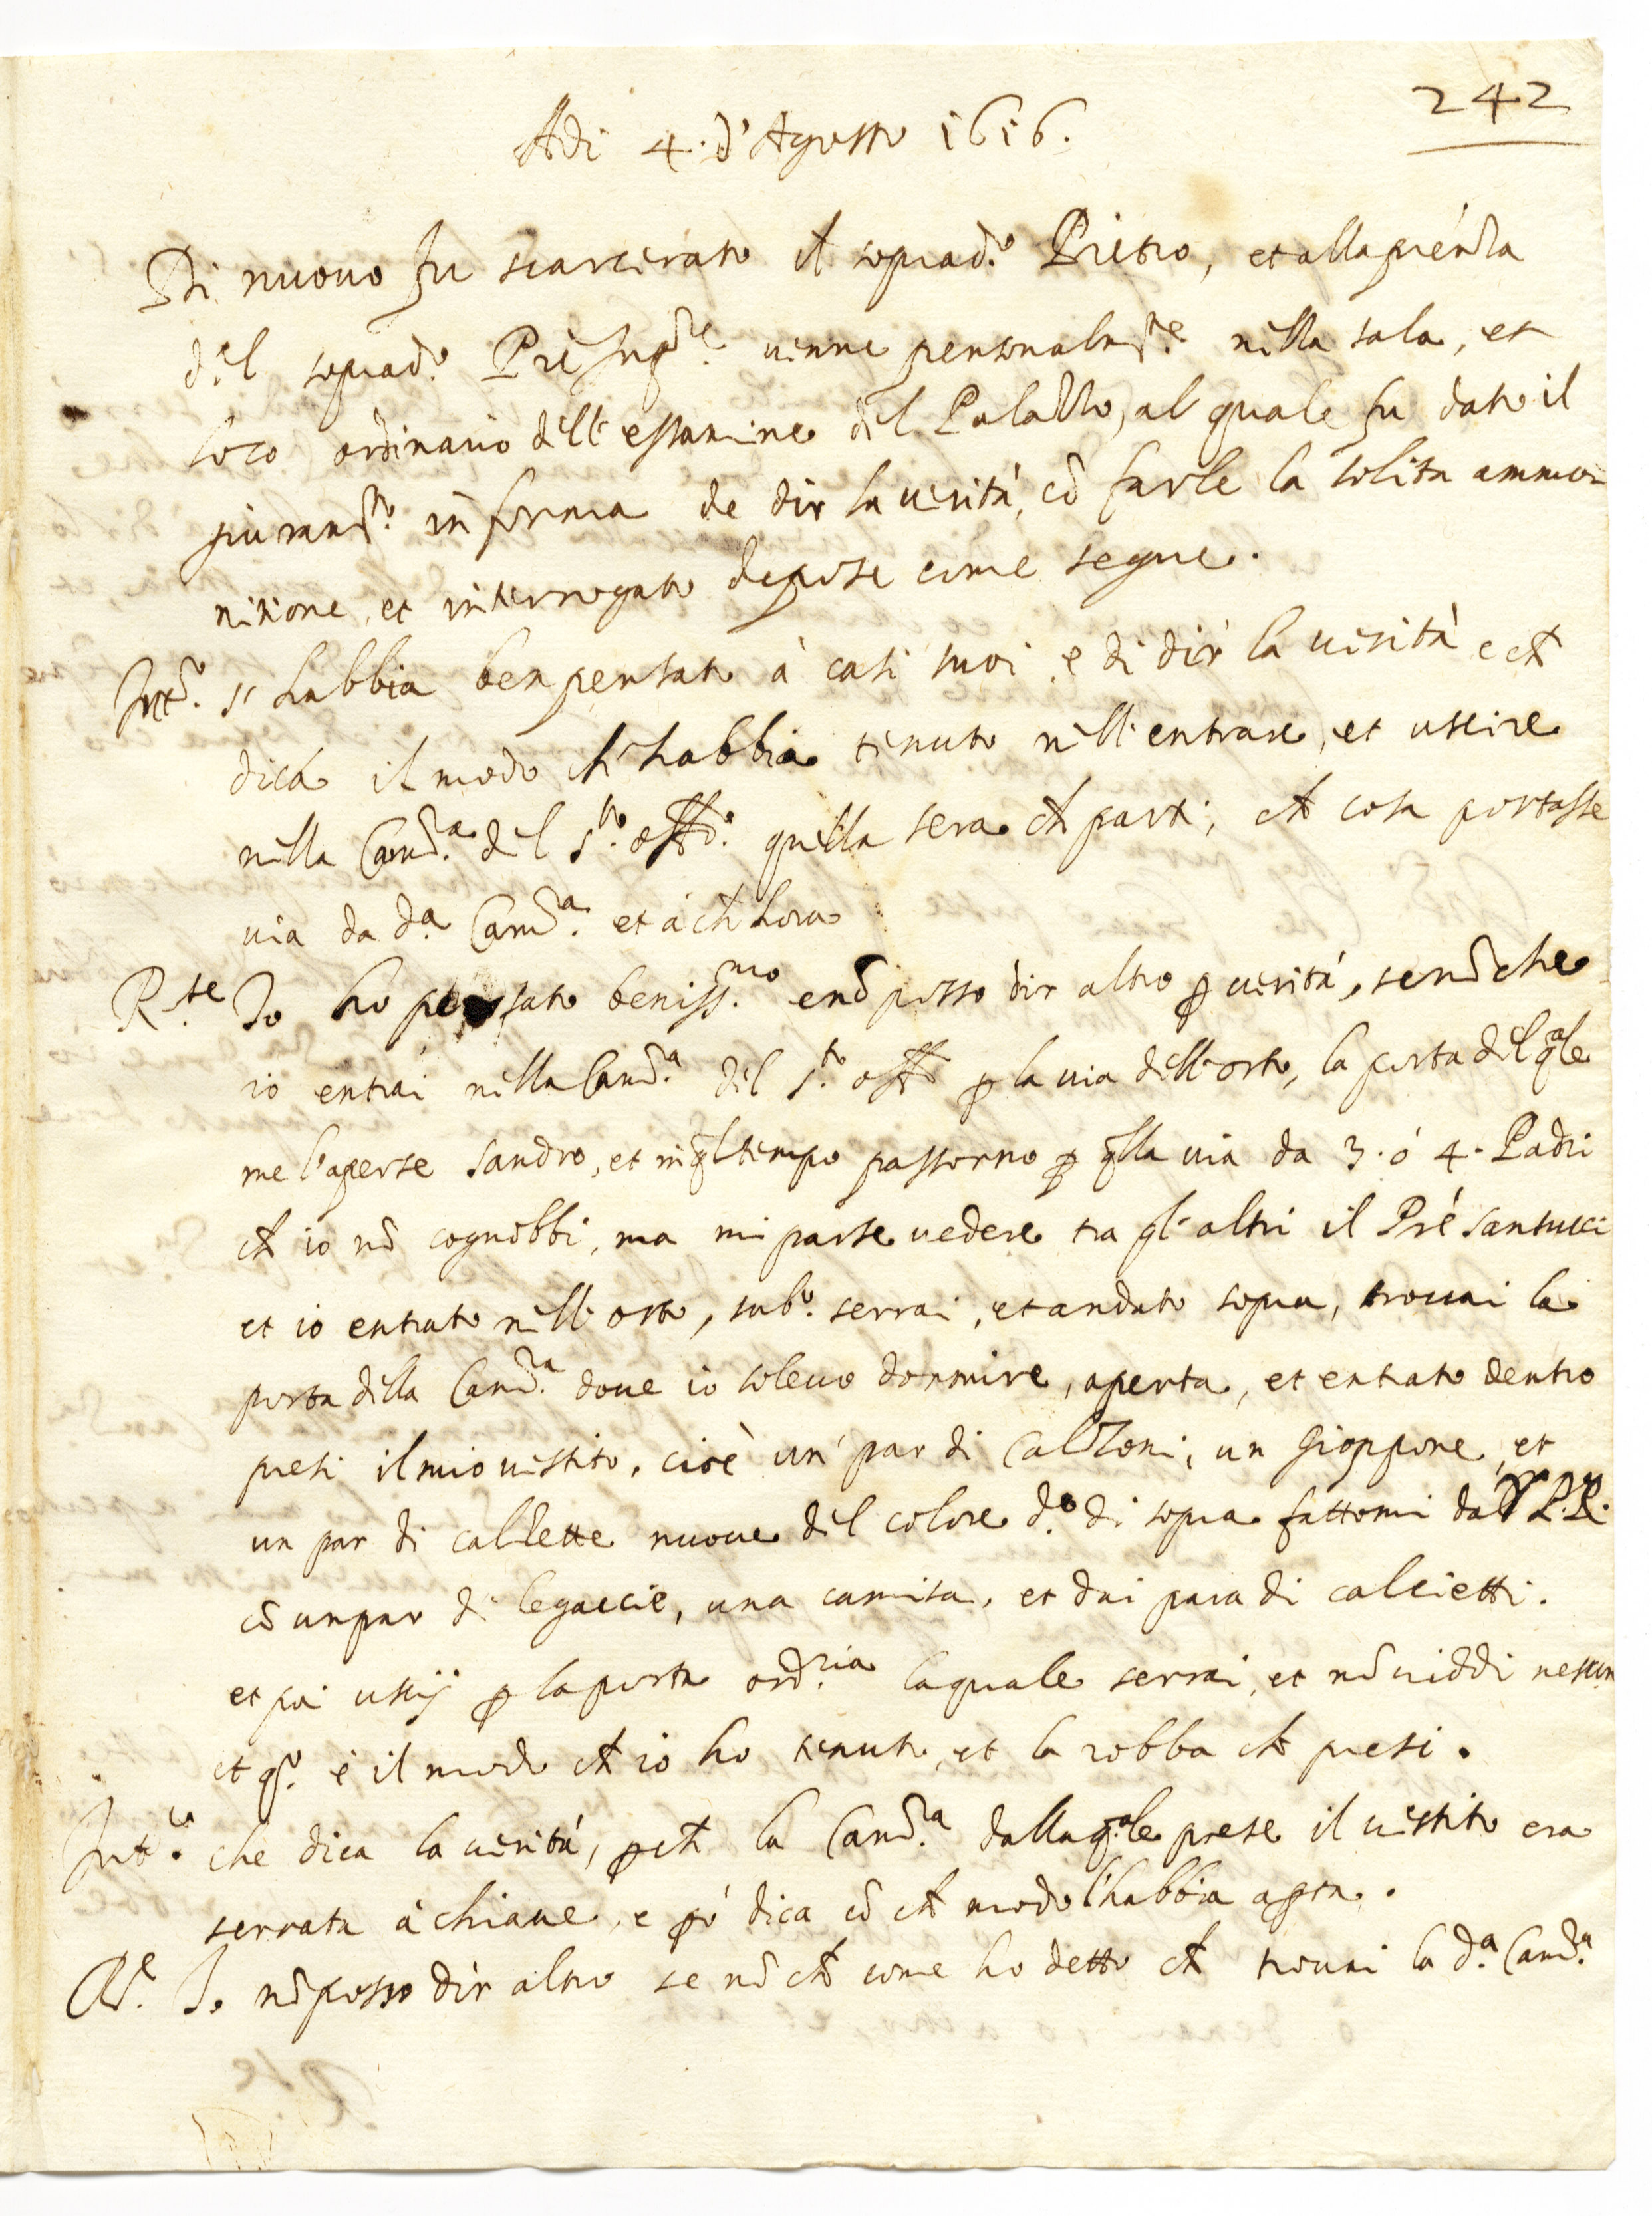 242
Adi 4. d'Agosto 1616.
Di nuouo fu scarcerato il soprad.o Pietro, et alla preñza
del soprad.o Prẽ Inq.re uenne personalm.te nella sala, et
loco ordinario dell'essamine del Palazzo, al quale fu dato il
giuram.to in forma de dir la uerità, cõ farle la solita ammo=
nitione, et interrogato depose come segue.
Int.o s'habbia ben pensato à casi suoi, e di dir la uerità e ch̃
dica il modo ch'habbia tenuto nell'entrare, et uscire
nella Cam.ra del S.to Off.o quella sera ch̃ partì, ch̃ cosa portasse
uia da d.a Cam.ra et à ch̃ hora
R.te Io ho pensato beniss.mo e nõ posso dir altro ꝑ uerità, se nõ che
io entrai nella Cam.ra del S.to Off.o ꝑ la uia dell'orto, la porta del q.ale
me l'aperse Sandro, et in q̃l tempo passorno ꝑ q̃lla uia da 3. ò 4. Padri
ch̃ io nõ cognobbi, ma mi parse uedere tra gl'altri il Prẽ Santucci
et io entrato nell'orto, sub.o serrai, et andato sopra, trouai la
porta della Cam.ra doue io soleuo dormire, aperta, et entrato dentro
presi il mio uestito, cioè un par di Calzoni, un Gioppone, et
un par di calzette nuoue del colore d.o di sopra fattomi da V. P. R.
cõ un par di legaccie, una camisa, et dui para di calcietti.
et poi uscij ꝑ la porta ord.ria la quale serrai, et nõ uiddi nessun
et q.o è il modo ch̃ io ho tenuto, et la robba ch̃ presi.
Int.o che dica la uerità, ꝑch̃ la Cam.ra dalla q.ale prese il uestito era
serrata à chiaue, e ꝑò dica cõ ch̃ modo l'habbia aꝑta.
R.e Io nõ posso dir altro se nõ ch̃ come ho detto ch̃ trouai la d.a Cam.ra